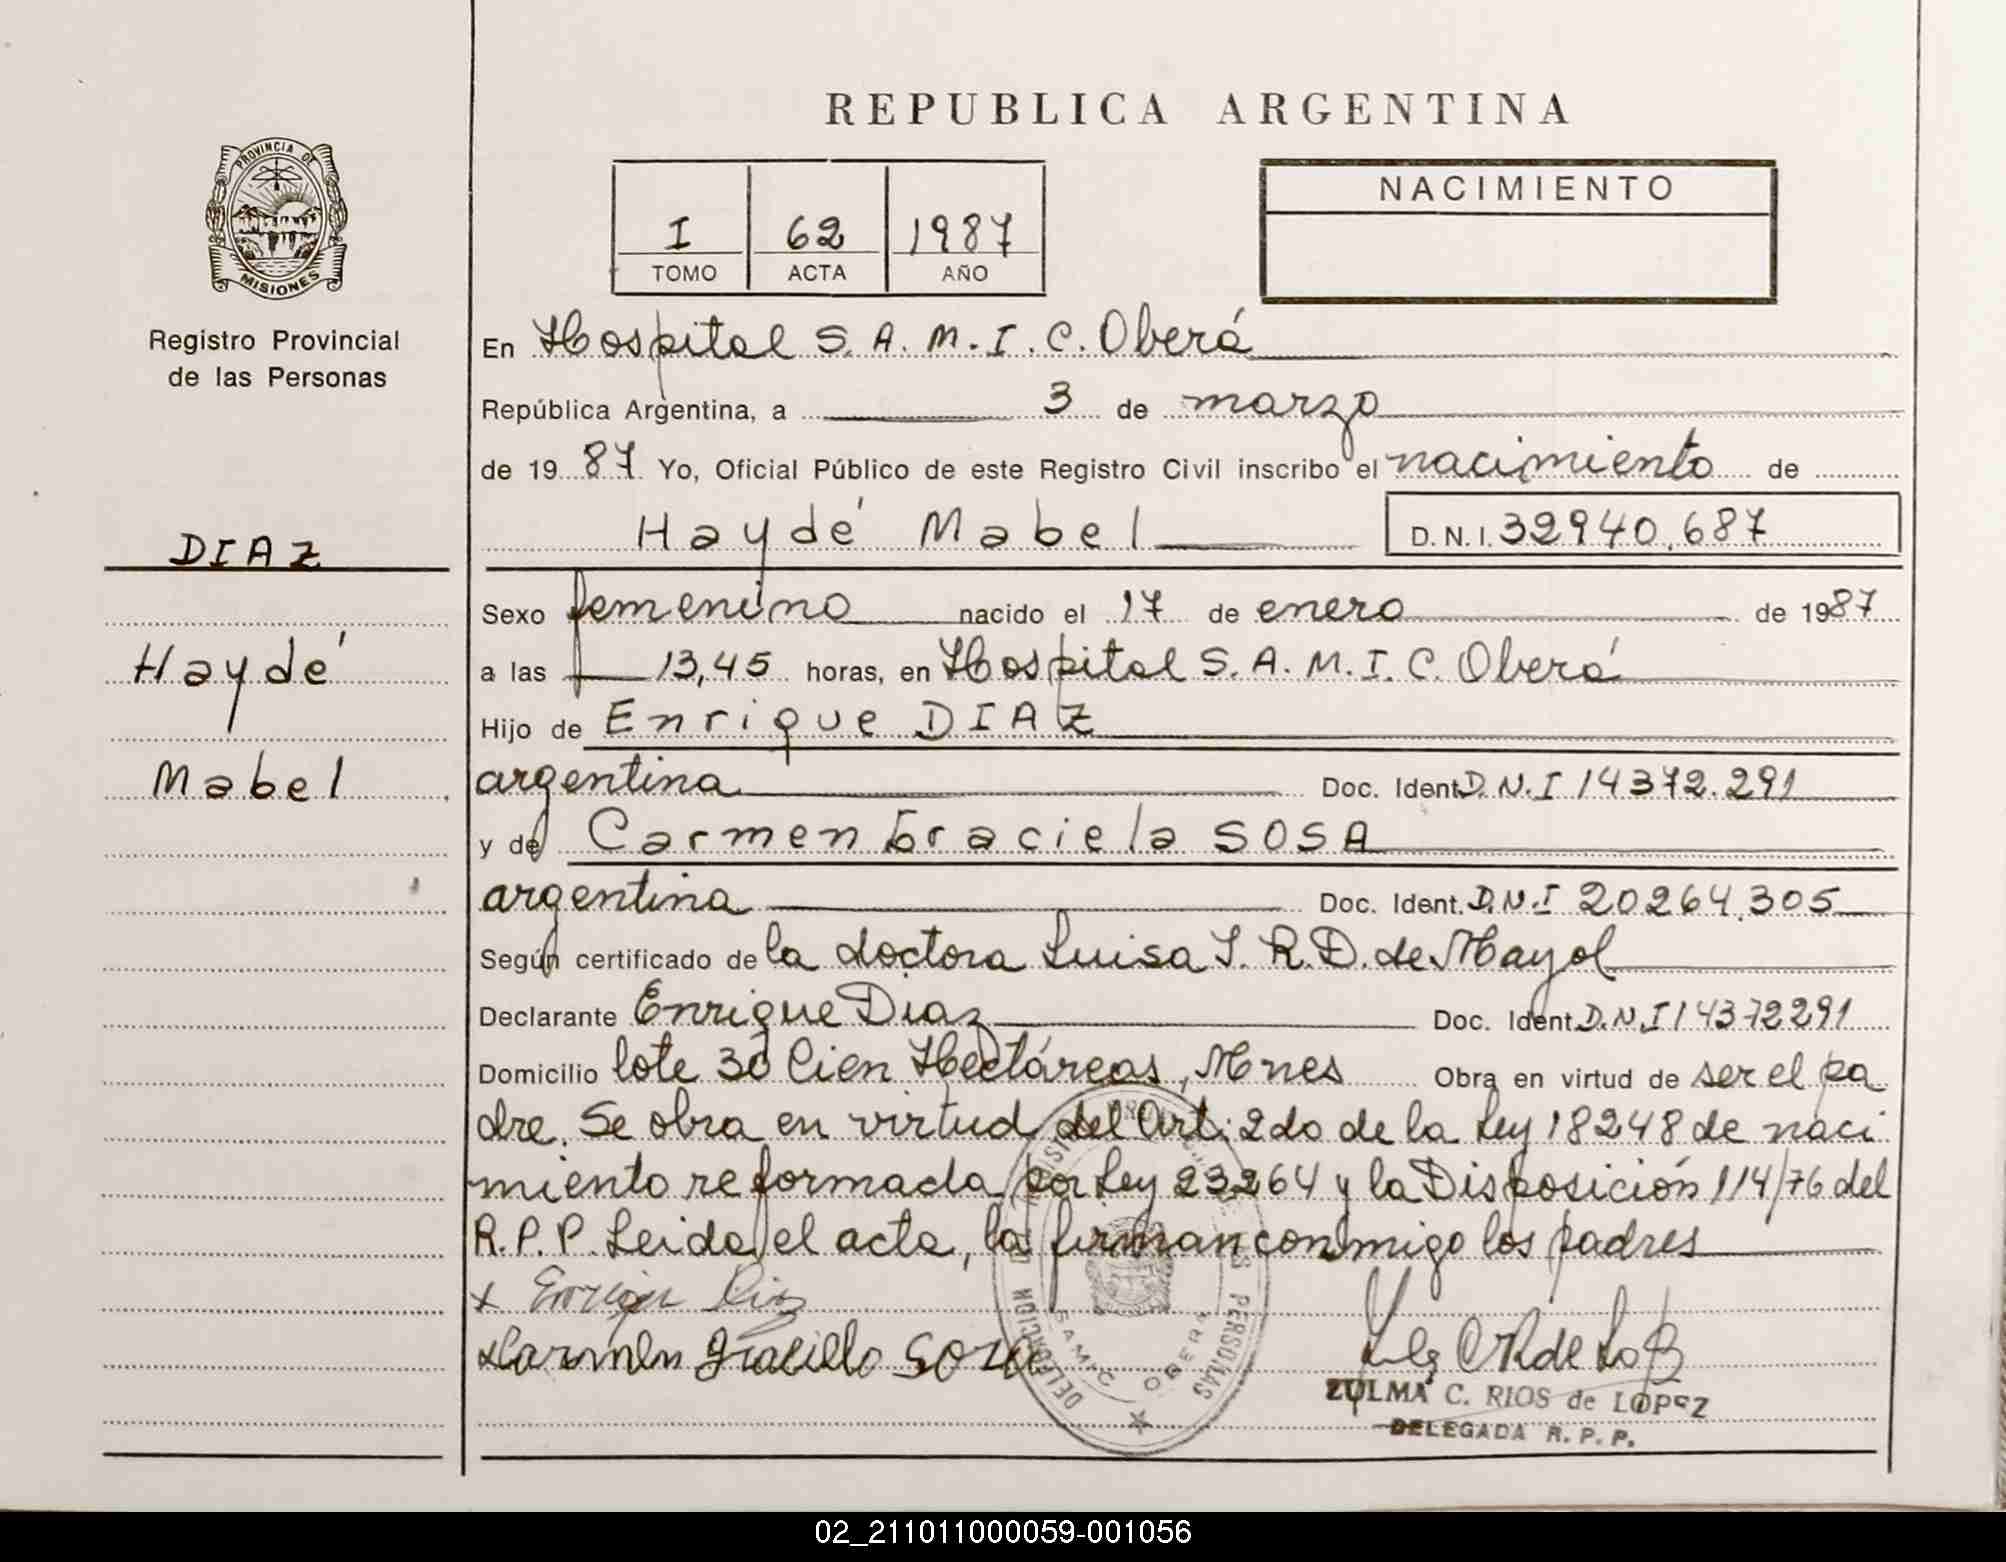 REPUBLICA ARGENTINA
PROVINCIA DE
MISIONES
Registro Provincial
de las Personas
I 62 1987
TOMO ACTA AÑO
NACIMIENTO
En Hospital S.A.M.I.C. Oberá
República Argentina, a 3 de marzo
de 1987 Yo, Oficial Público de este Registro Civil inscribo el nacimiento de
Haydé Mabel D.N.I. 32940.687
DIAZ
Haydé
Mabel
Sexo femenino nacido el 17 de enero de 1987
a las 13,45 horas, en Hospital S.A.M.I.C. Oberá
Hijo de Enrique DIAZ
argentina Doc. Ident. D.N.I 14372.291
y de Carmen Graciela SOSA
argentina Doc. Ident. D.N.I 20264.305
Según certificado de la doctora Luisa I. R. D. de Mayol
Declarante Enrique Diaz Doc. Ident. D.N.I 14372291
Domicilio lote 30 Cien Hectáreas, Mnes Obra en virtud de ser el pa
dre. Se obra en virtud del Art: 2do de la Ley 18248 de naci
miento reformada por Ley 23264 y la Disposición 114/76 del
R.P.P. Leida el acta, la firman conmigo los padres
x Enrique Diaz
x Carmen Graciela Soza
DELEGACION SAMIC OBERA
PERSONAS
ZULMA C. RIOS de LOPEZ
DELEGADA R. P. P.
02_211011000059-001056